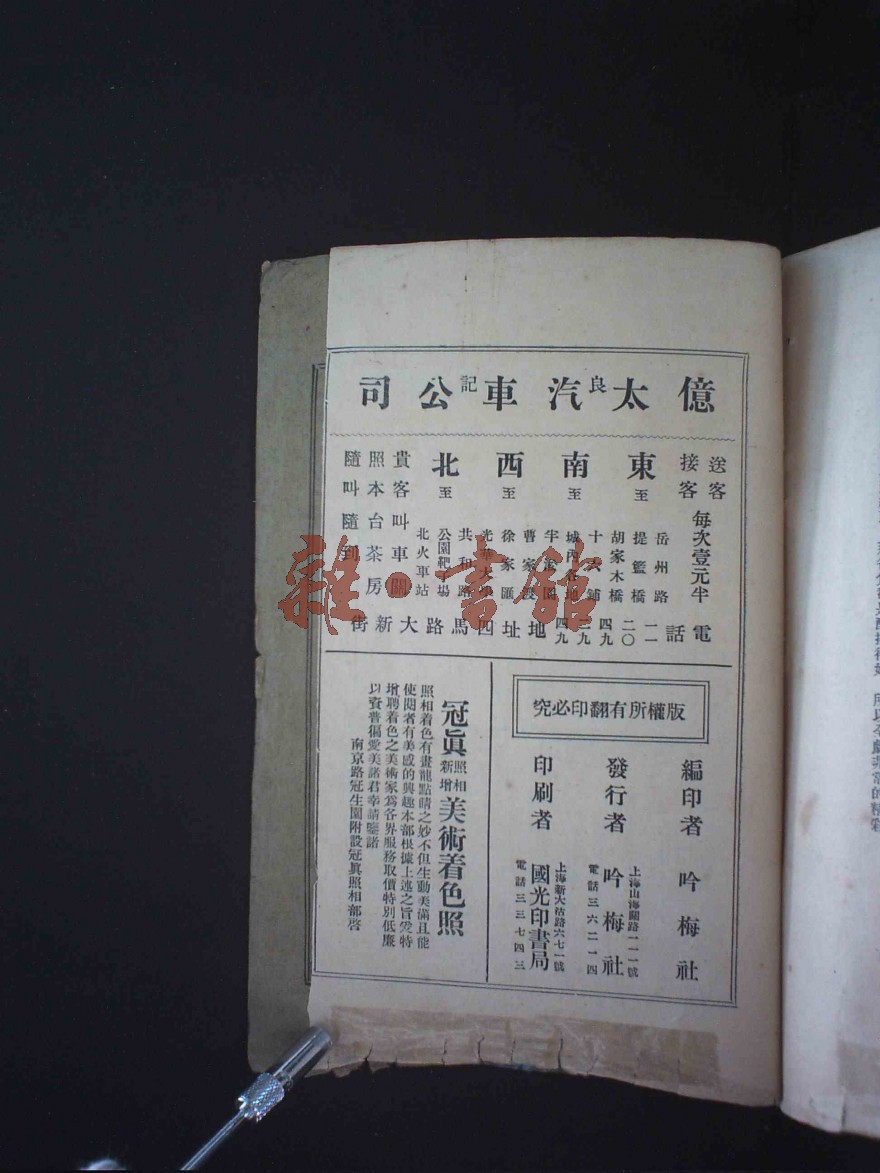 億太良汽車記公司
送客
接客
每次壹元半
東至
岳州路
提籃橋
胡家木橋
南至
十六舖
城內各地
半淞園
西至
曹家渡
徐家匯
光華大學
北至
共和路
公園靶子場
北火車站
貴客叫車關
照本台茶房
隨叫隨到
電話
一一
二〇
四九
二九
四九
地址四馬路大新街
版權所有翻印必究
編印者 吟梅社
發行者
上海山海關路一一一號
吟梅社
電話三六二一四
印刷者
上海新大沽路六七一號
國光印書局
電話三三七四三
冠眞照相新增美術着色照
照相着色有畫龍點睛之妙不但生動美滿且能
使閱者有美感的興趣本部根據上述之旨爰特
增聘着色之美術家爲各界服務取價特別低廉
以資普徧愛美諸君幸請鑒諸
南京路冠生園附設冠眞照相部啓
雜·書館